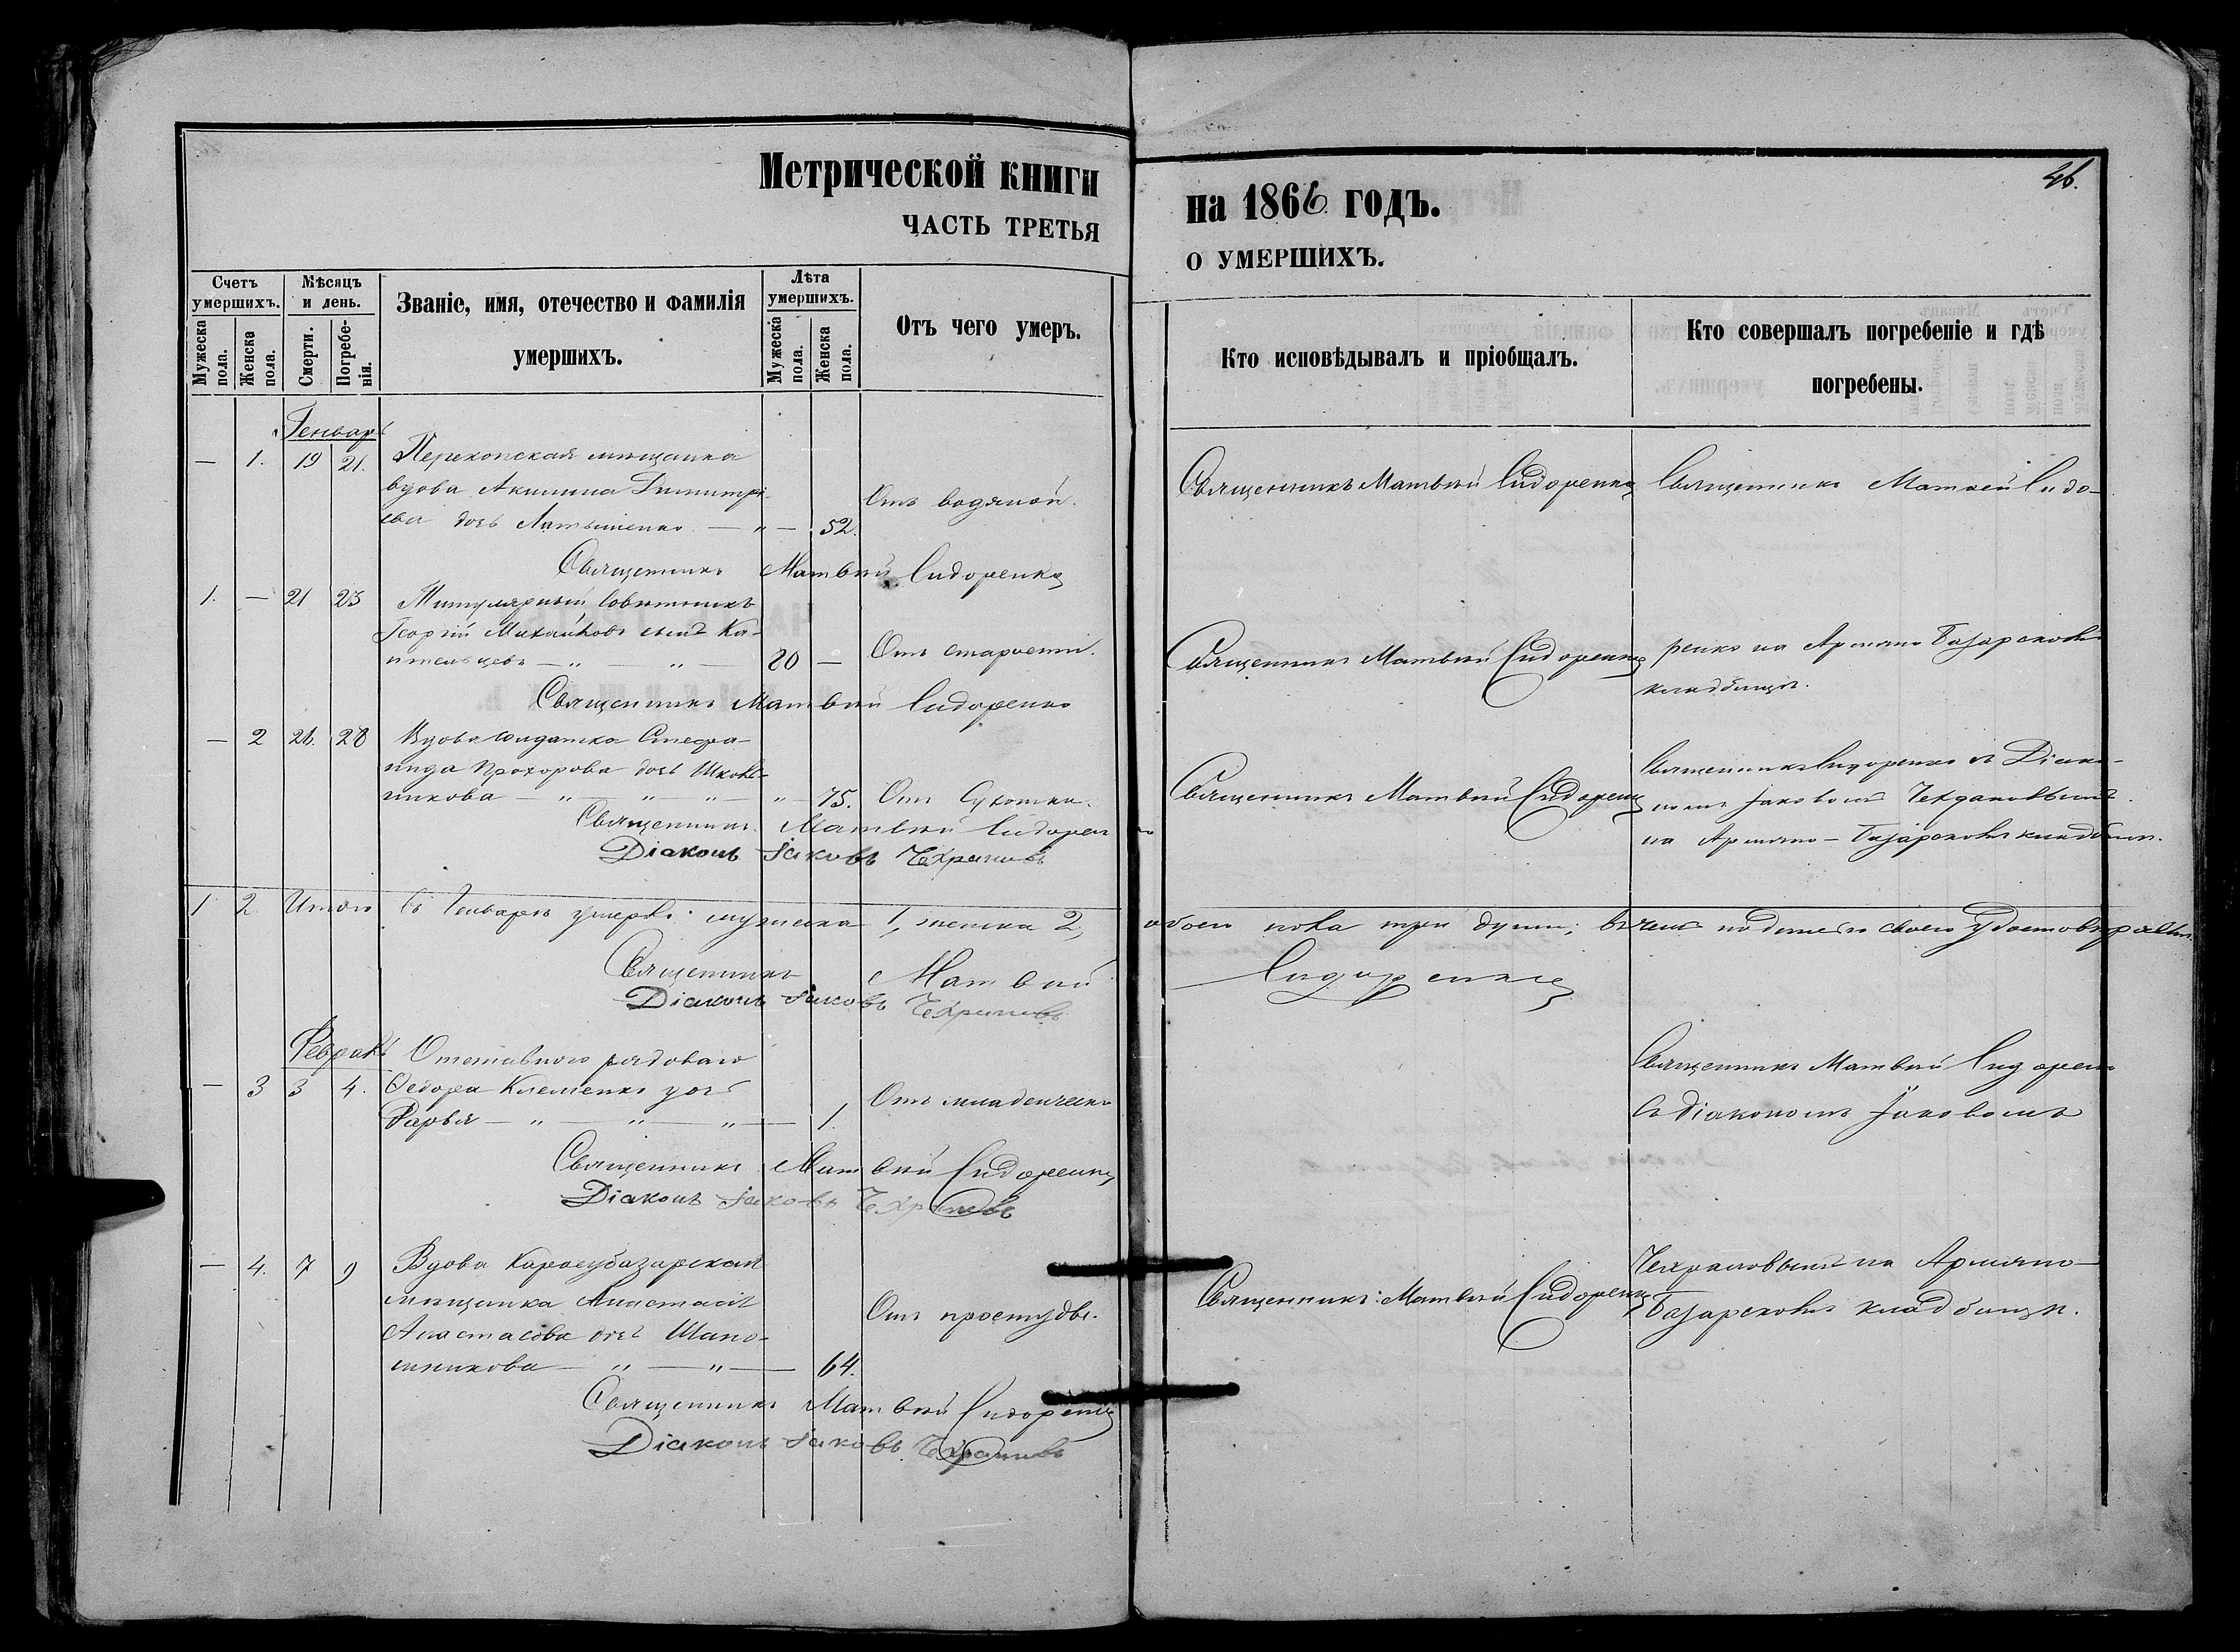 Метрической книги
ЧАСТЬ ТРЕТЬЯ
Счетъ умершихъ.
Мужеска пола.
Женска пола.
Мѣсяцъ и день.
Смерти.
Погребе-нія.
Званіе, имя, отечество и фамилія
умершихъ.
Лѣта умершихъ.
Мужеска пола.
Женска пола.
Отъ чего умеръ.
Генварь
— 1. 19 21. Перекопская мѣщанка
вдова Акилина Димитрі
ева дочь — „ — 52. Отъ водяной.
Священникъ Матвѣй Сидоренко
1. — 21 23 Титулярный Совѣтникъ
Георгій Михайловъ сынъ Ка-
— „ — „ — 80 — Отъ старости.
Священникъ Матвѣй Сидоренко
— 2 26. 28 Вдова солдатка Стефа-
нида Прохорова дочь
— „ — „ — „ — „ — 75. Отъ Сухотки.
Священникъ Матвѣй Сидоренко
Діаконъ Іаковъ
1 2 Итого въ Генварѣ умерло: мужеска 1, женска 2,
Священникъ Матвѣй
Діаконъ Іаковъ
Февраль
Отставного рядоваго
— 3 3 4. Федора Клеменко дочь
Дарья — „ — „ — „ — 1. Отъ младенческ
Священникъ Матвѣй Сидоренко
Діаконъ Іаковъ
— 4. 7 9 Вдова Карасубазарская
мѣщанка Анастасія
Анастасова дочь Шапо-
шникова — „ — „ — 64. Отъ простуды.
Священникъ Матвѣй Сидоренко
Діаконъ Іаковъ
46.
на 1866 годъ.
О УМЕРШИХЪ.
Кто исповѣдывалъ и пріобщалъ.
Кто совершалъ погребеніе и гдѣ
погребены.
Священникъ Матвѣй Сидоренко
Священникъ Матвей Сидо-
Священникъ Матвѣй Сидоренко
ренко на Армяно Базарскомъ
кладбищѣ.
Священникъ Матвѣй Сидоренко
Священникъ Сидоренко съ Діако-
номъ Іаковомъ
на Армяно-Базарскомъ кладбищ.
обоего пола три души; въ чемъ
Сидоренко
Священникъ Матвѣй Сидоренко
съ діакономъ Іаковомъ
Священникъ: Матвѣй Сидоренко
на Армяно-
Базарскомъ кладбищѣ.